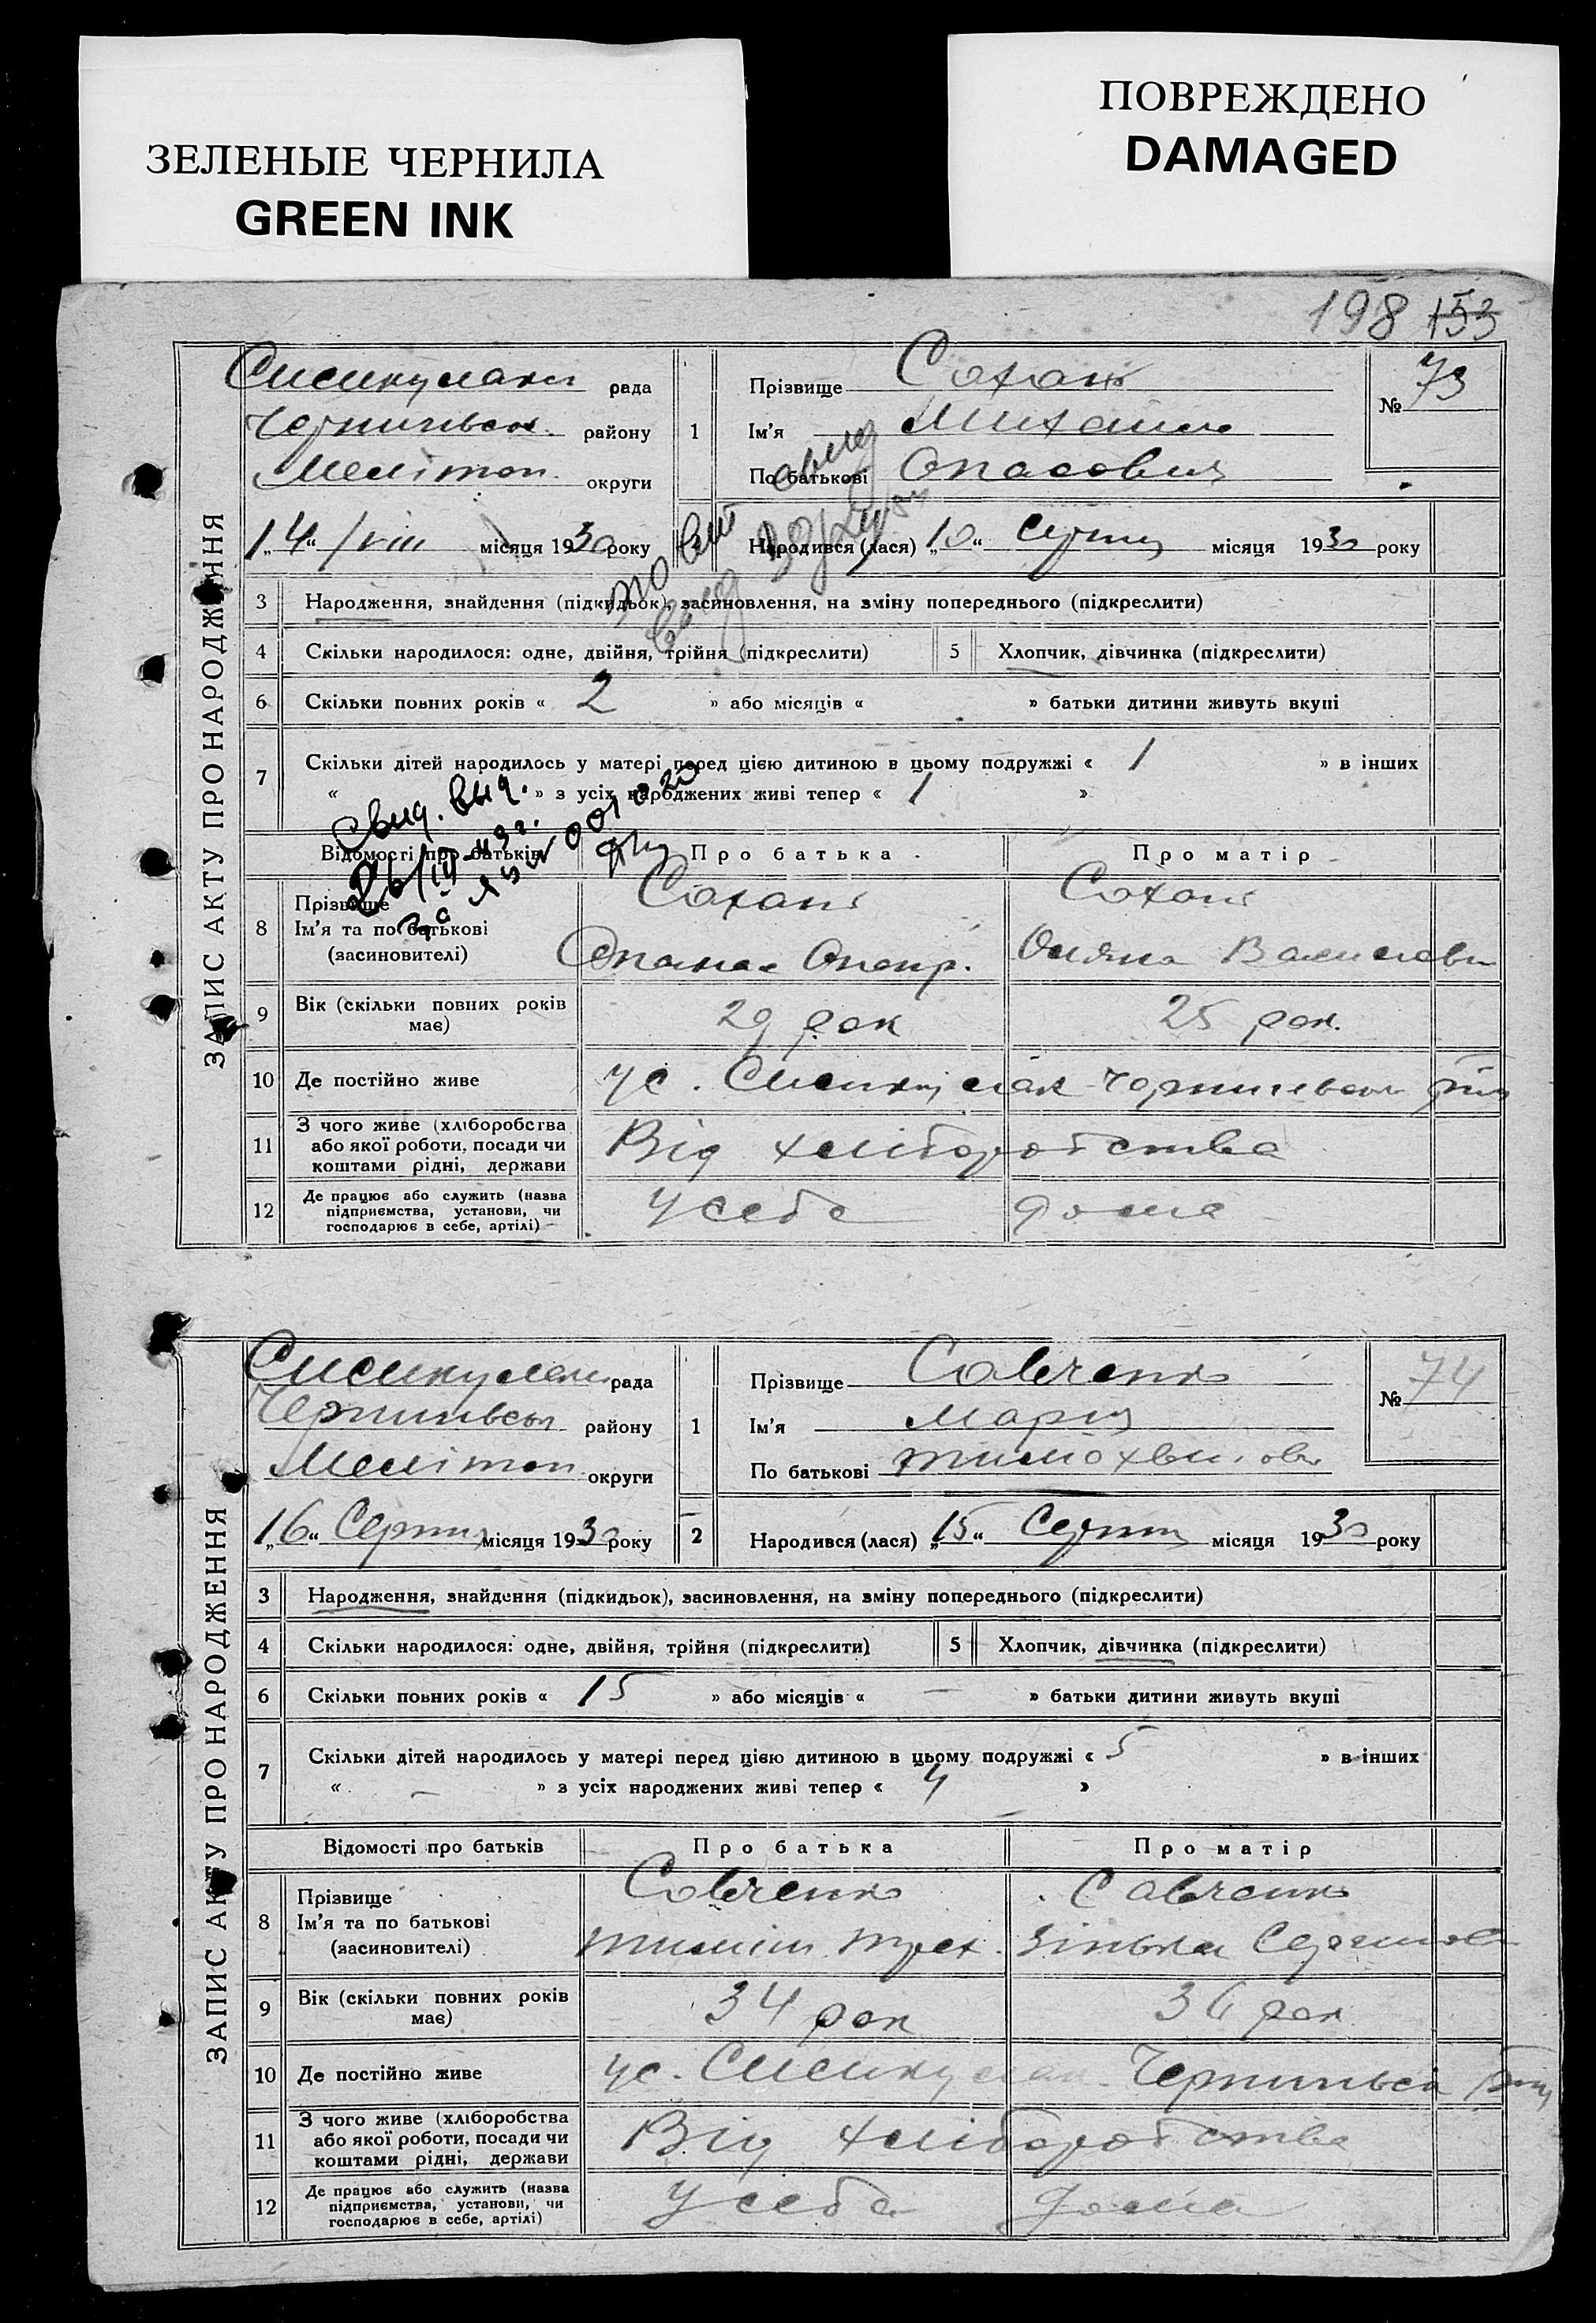 ЗЕЛЕНЫЕ ЧЕРНИЛА
GREEN INK
ПОВРЕЖДЕНО
DAMAGED
198 153
ЗАПИС АКТУ ПРО НАРОДЖЕННЯ
рада
району
Меліто​п. округи
„14“ /VIII місяця 1930 року
1
Прізвище Сохань
Ім'я Михайло
По батькові Опасович
№ 73
Народився (лася) „10“ Серпня місяця 1930 року
3 Народження, знайдення (підкидьок), засиновлення, на зміну попереднього (підкреслити)
4 Скільки народилося: одне, двійня, трійня (підкреслити)
5 Хлопчик, дівчинка (підкреслити)
6 Скільки повних років « 2 » або місяців « » батьки дитини живуть вкупі
7 Скільки дітей народилось у матері перед цією дитиною в цьому подружжі « 1 » в інших
« » з усіх народжених живі тепер « 1 »
Свид. выд.
Відомості про батьків Про батька Про матір
8 Прізвище Сохань Сохань
Ім'я та по батькові Опанас Василівн
(засиновителі)
9 Вік (скільки повних років має) 29 рок 25 рок.
10 Де постійно живе у с.
11 З чого живе (хліборобства або якої роботи, посади чи коштами рідні, держави Від хліборобства
12 Де працює або служить (назва підприємства, установи, чи господарює в себе, артілі) У себе дома
ЗАПИС АКТУ ПРО НАРОДЖЕННЯ
рада
району
Мелітоп округи
„16“ Серпня місяця 1930 року
1
Прізвище Савченко
Ім'я Марія
По батькові
№ 74
2 Народився (лася) „15“ Серпня місяця 1930 року
3 Народження, знайдення (підкидьок), засиновлення, на зміну попереднього (підкреслити)
4 Скільки народилося: одне, двійня, трійня (підкреслити)
5 Хлопчик, дівчинка (підкреслити)
6 Скільки повних років « 15 » або місяців « — » батьки дитини живуть вкупі
7 Скільки дітей народилось у матері перед цією дитиною в цьому подружжі « 5 » в інших
« — » з усіх народжених живі тепер « 4 »
Відомості про батьків Про батька Про матір
8 Прізвище Савченко Савченко
Ім'я та по батькові Зінька
(засиновителі)
9 Вік (скільки повних років має) 34 рок 36 рок
10 Де постійно живе у с.
11 З чого живе (хліборобства або якої роботи, посади чи коштами рідні, держави Від хліборобства
12 Де працює або служить (назва підприємства, установи, чи господарює в себе, артілі) У себе дома